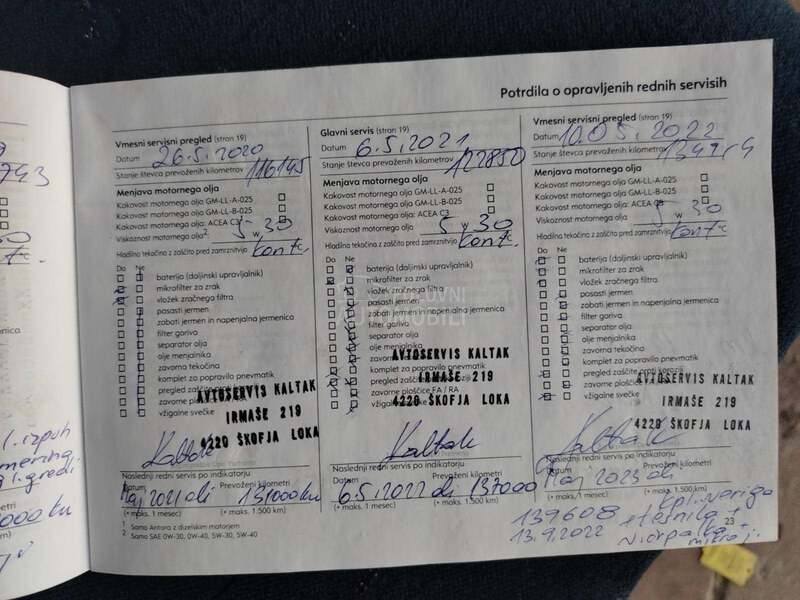 Potrdila o opravljenih rednih servisih
Vmesni servisni pregled (stran 19)
Datum 26.5.2020
Stanje števca prevoženih kilometrov 116145
Menjava motornega olja
Kakovost motornega olja GM-LL-A-025
Kakovost motornega olja GM-LL-B-025
Kakovost motornega olja: ACEA C3
Viskoznost motornega olja² 5 w 30
Hladilno tekočino z zaščito pred zamrznitvijo kont.
Da Ne
baterija (daljinski upravljalnik)
mikrofilter za zrak
vložek zračnega filtra
pasasti jermen
zobati jermen in napenjalna jermenica
filter goriva
separator olja
olje menjalnika
zavorna tekočina
komplet za popravilo pnevmatik
pregled zaščite proti
zavorne
vžigalne svečke
AVTOSERVIS KALTAK
IRMAŠE 219
4220 ŠKOFJA LOKA
Kaltak
Naslednji redni servis po indikatorju
Datum Prevoženi kilometri
Maj 2021 ali 131000 km
(+ maks. 1 mesec) (+ maks. 1.500 km)
¹ Samo Antara z dizelskim motorjem
² Samo SAE 0W-30, 0W-40, 5W-30, 5W-40
Glavni servis (stran 19)
Datum 6.5.2021
Stanje števca prevoženih kilometrov 122850
Menjava motornega olja
Kakovost motornega olja GM-LL-A-025
Kakovost motornega olja GM-LL-B-025
Kakovost motornega olja: ACEA C3
Viskoznost motornega olja 5 w 30
Hladilno tekočino z zaščito pred zamrznitvijo kont.
Da Ne
baterija (daljinski upravljalnik)
mikrofilter za zrak
vložek zračnega filtra
pasasti jermen
zobati jermen in napenjalna jermenica
filter goriva
separator olja
olje menjalnika
zavorna
komplet za popravilo pnevmatik
pregled zaščite proti koroziji
zavorne ploščice FA / RA
vžigalne
AVTOSERVIS KALTAK
IRMAŠE 219
4220 ŠKOFJA LOKA
Kaltak
Naslednji redni servis po indikatorju
Datum Prevoženi kilometri
6.5.2022 ali 137000
(+ maks. 1 mesec) (+ maks. 1.500 km)
Vmesni servisni pregled (stran 19)
Datum 10.05.2022
Stanje števca prevoženih kilometrov
Menjava motornega olja
Kakovost motornega olja GM-LL-A-025
Kakovost motornega olja GM-LL-B-025
Kakovost motornega olja: ACEA C3
Viskoznost motornega olja 5 w 30
Hladilno tekočino z zaščito pred zamrznitvijo kont.
Da Ne
baterija (daljinski upravljalnik)
mikrofilter za zrak
vložek zračnega filtra
pasasti jermen
zobati jermen in napenjalna jermenica
filter goriva
separator olja
olje menjalnika
zavorna tekočina
komplet za popravilo pnevmatik
pregled zaščite proti koroziji
zavorne ploščice
vžigalne svečke
AVTOSERVIS KALTAK
IRMAŠE 219
4220 ŠKOFJA LOKA
Kaltak
Naslednji redni servis po indikatorju
Datum Prevoženi kilometri
Maj 2023 ali
(+ maks. 1 mesec) (+ maks. 1.500 km)
139608 kpl. veriga
13.9.2022 + tesnila +
23